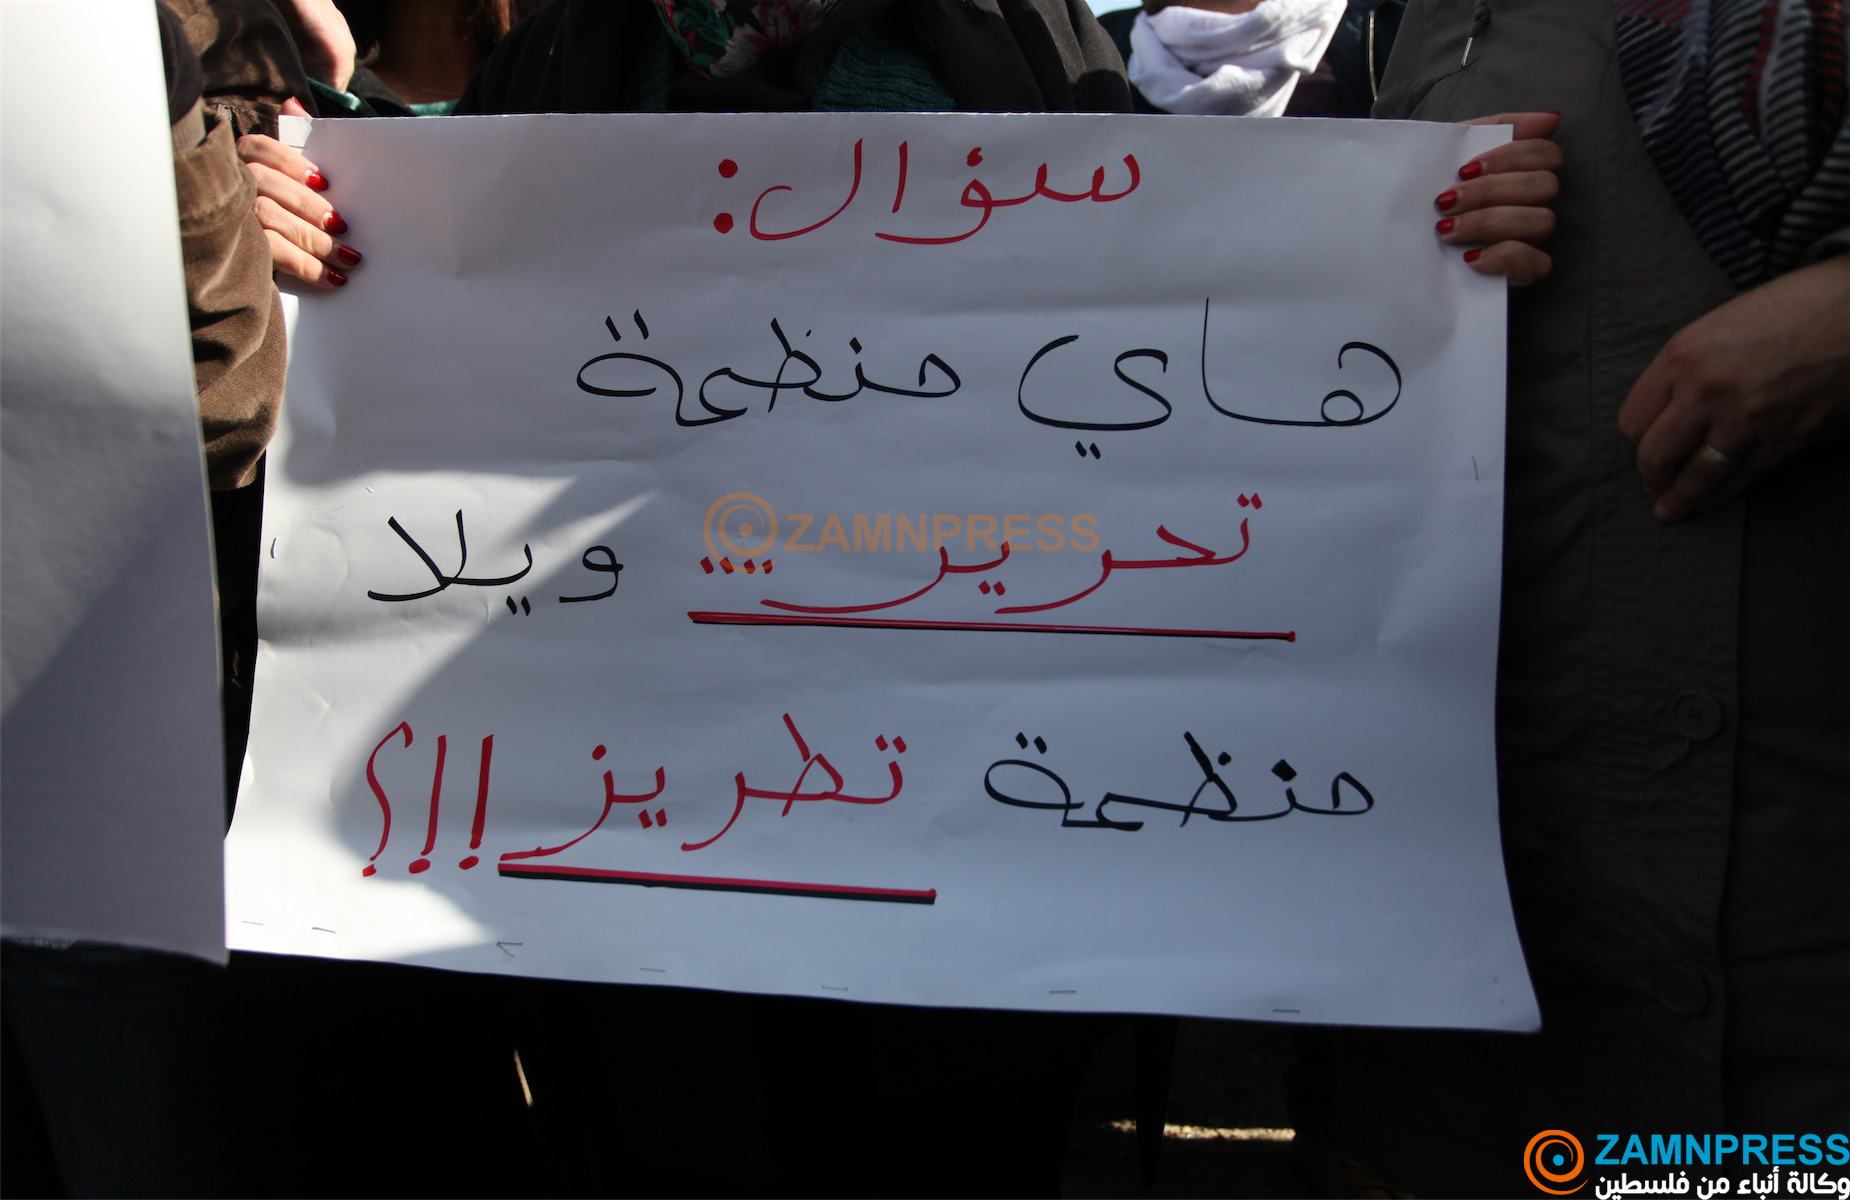 سؤال:
هاي منظمة
تحرير .... ويلا
منظمة تطريز !!؟
ZAMNPRESS
ZAMNPRESS
وكالة أنباء من فلسطين